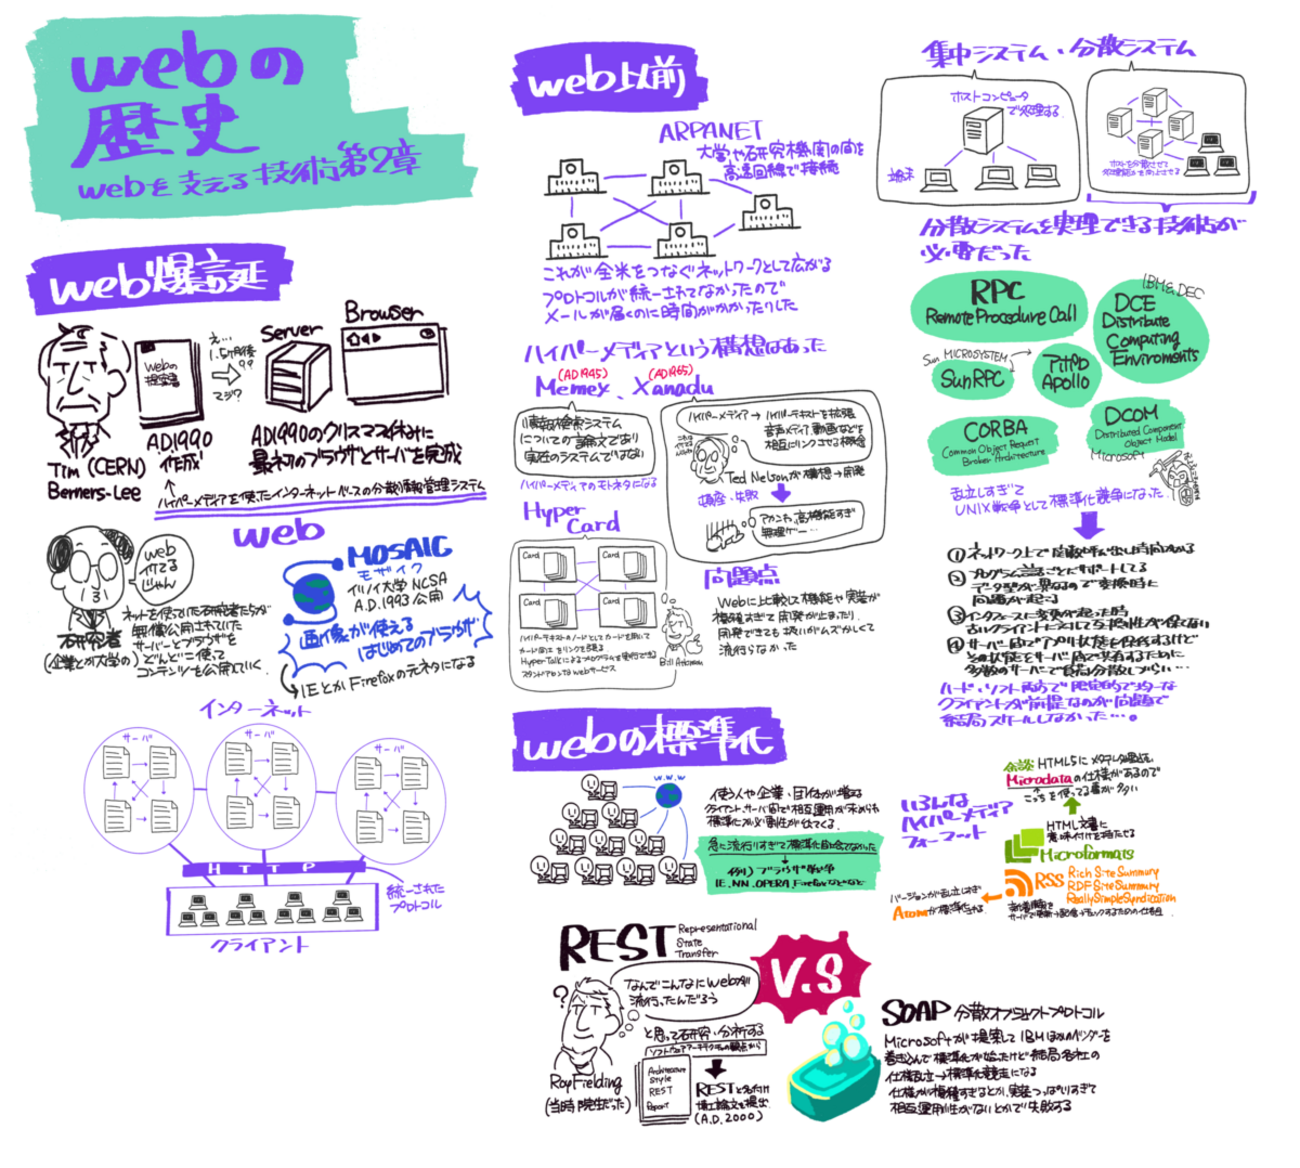 webの
歴史
webを支える技術第2章
web爆誕
え…
1.5ヶ月後
??
マジ?
webの
提案書
Server
Browser
Tim (CERN)
Berners-Lee
A.D.1990
作成
A.D.1990のクリスマス休みに
最初のブラウザとサーバを完成
ハイパーメディアを使ったインターネットベースの分散情報管理システム
web
web
イケてる
じゃん
研究者
(企業とか大学の)
ネットを使っていた研究者たちが
無償公開されていた
サーバーとブラウザを
どんどこ使って
コンテンツも公開していく
MOSAIC
モザイク
イリノイ大学 NCSA
A.D.1993 公開
画像が使える
はじめてのブラウザ
→IEとかFirefoxの元ネタになる
インターネット
サーバ
サーバ
サーバ
HTTP
統一された
プロトコル
クライアント
web以前
ARPANET
大学や研究機関の間を
高速回線で接続
これが全米をつなぐネットワークとして広がる
プロトコルが統一されてなかったので
メールが届くのに時間がかかったりした
ハイパーメディアという構想はあった
(AD1945)
(AD1965)
Memex、Xanadu
情報検索システム
についての論文であり
実在のシステムではない
ハイパーメディアのモトネタになる
ハイパーメディア→ハイパーテキストを拡張
音声メディア、動画などを
相互にリンクさせる概念
Ted Nelsonが構想→開発
頓座・失敗
アカンわ、高機能すぎ
無理ゲー…
Hyper
Card
Card
Card
Card
Card
ハイパーテキストのノードとしてカードを用いて
カード間をリンクを張る
HyperTalkによるプログラムを実行できる
スタンドアロンなwebサービス
Bill Atkinson
問題点
Webに比較して機能や実装が
複雑すぎて開発が止まったり
開発できても扱いがムズかしくて
流行らなかった
集中システム・分散システム
ホストコンピュータ
で処理する
端末
ホストを分散させて
処理能力を向上させる
分散システムを実現できる技術が
必要だった
RPC
Remote Procedure Call
IBM&DEC
DCE
Distribute
Computing
Enviroments
Sun MICROSYSTEM
SunRPC
Apollo
CORBA
Common Object Request
Broker Architecture
DCOM
Distributed Component
Object Model
Microsoft
乱立しすぎて
UNIX戦争として標準化競争になった
① ネットワーク上で関数呼び出し時間かかる
② プログラム言語ごとにサポートしてる
データ型が異なるので変換時に
問題が起こる
③ インタフェースに変更が起った時
古いクライアントに対して互換性が保てない
④ サーバー間でアプリ状態を保存するけど
その状態をサーバ間で共有するために
多数のサーバで負荷分散しづらい…
ハード・ソフト両方で限定的でホモな
クライアントが前提なのが問題で
結局スケールしなかった…。
webの標準化
w.w.w
使う人や企業・団体が増える
クライアント、サーバ間で相互運用が求められ
標準化の必要性が出てくる
急に流行りすぎて標準化間に合てなかった
例)ブラウザ戦争
IE、NN、OPERA、Firefoxなどなど
いろんな
ハイパーメディア
フォーマット
余談 HTML5にメタデータ記述
Microdataの仕様があるので
こっちを使ってる事が多い
HTML文書に
意味付けを持たせる
Microformats
RSS
Rich Site Summary
RDF Site Summary
Really Simple Syndication
バージョンが乱立しすぎ
Atomが標準化する
REST
Representational
State
Transfer
なんでこんなにwebが
流行ったんだろう
と思って研究・分析する
ソフトウェアアーキテクチャの観点から
Roy Fielding
(当時院生だった)
Architecture
style
REST
Report
RESTと名付け
博士論文を提出
(A.D.2000)
V.S
SOAP 分散オブジェクトプロトコル
Microsoftが提案してIBMほかのベンダーを
巻き込んで標準化が始ったけど結局各社の
仕様乱立→標準化競走になる
仕様が複雑すぎるとか、実装つっぱしりすぎて
相互運用性がないとかで失敗する